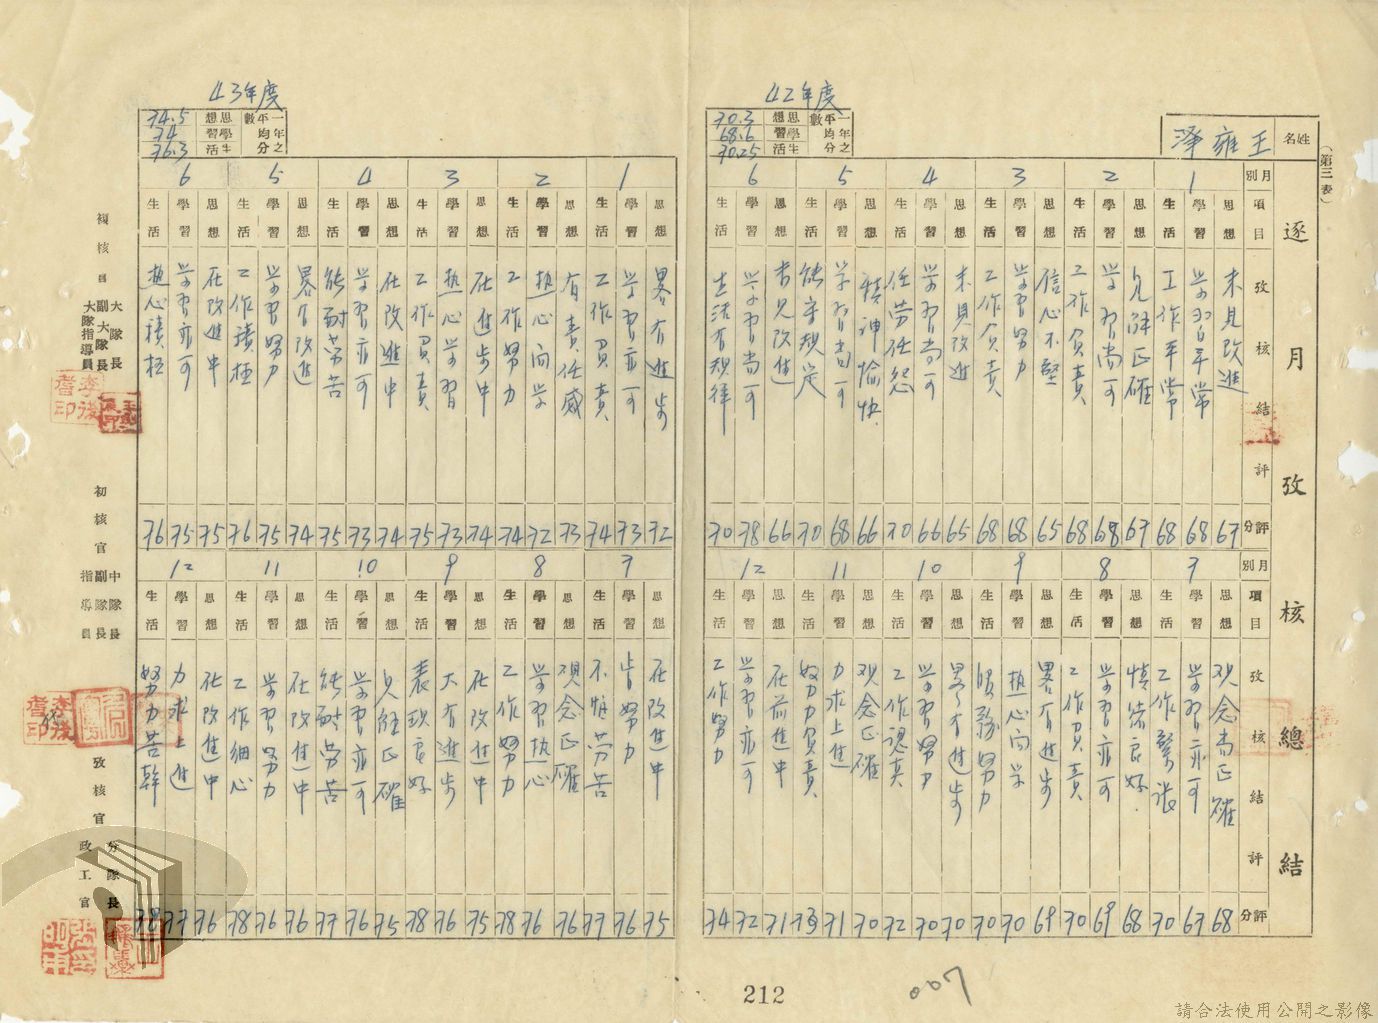 (第三表)
逐月攷核總結
姓名 王雍淨
42年度
一年之平均分數
思想 70.3
學習 68.6
生活 70.25
月別 1 2 3 4 5 6
項目 思想 學習 生活 思想 學習 生活 思想 學習 生活 思想 學習 生活 思想 學習 生活 思想 學習 生活
攷核結評
未見改進
学習平常
工作平常
見解正確
学習尚可
工作負責
信心不堅
学習努力
工作負責
未見改進
学習尚可
任劳任怨
精神愉快
学習尚可
能守規定
尚見改進
学習尚可
生活有規律
評分 67 68 68 67 68 68 65 68 68 65 66 70 66 68 70 66 78 70
月別 7 8 9 10 11 12
項目 思想 學習 生活 思想 學習 生活 思想 學習 生活 思想 學習 生活 思想 學習 生活 思想 學習 生活
攷核結評
观念尚正確
学習亦可
工作緊張
情緒良好
学習亦可
工作負責
畧有進步
热心向学
服務努力
畧有進步
学習努力
工作認真
观念正確
力求上進
努力負責
在前進中
学習亦可
工作努力
評分 68 67 70 68 69 70 69 70 70 70 70 72 70 71 73 71 72 74
43年度
一年之平均分數
思想 74.5
學習 74
生活 76.3
1 2 3 4 5 6
思想 學習 生活 思想 學習 生活 思想 學習 生活 思想 學習 生活 思想 學習 生活 思想 學習 生活
畧有進步
学習亦可
工作負責
有責任感
热心向学
工作努力
在進步中
热心学習
工作負責
在改進中
学習亦可
能耐劳苦
畧有改進
学習努力
工作積極
在改進中
学習亦可
热心積極
72 73 74 73 72 74 74 73 75 74 73 75 74 75 76 75 75 76
7 8 9 10 11 12
思想 學習 生活 思想 學習 生活 思想 學習 生活 思想 學習 生活 思想 學習 生活 思想 學習 生活
在改進中
肯努力
不怕劳苦
观念正確
学習热心
工作努力
在改進中
大有進步
表現良好
見解正確
学習亦可
能耐劳苦
在改進中
学習努力
工作細心
在改進中
力求上進
努力苦幹
75 76 77 76 76 78 75 76 78 75 76 77 76 76 78 76 77 78
複核員 大隊長 副大隊長 大隊指導員
初核官 中隊長 副隊長 指導員
攷核官 分隊長 政工官
212
007
請合法使用公開之影像